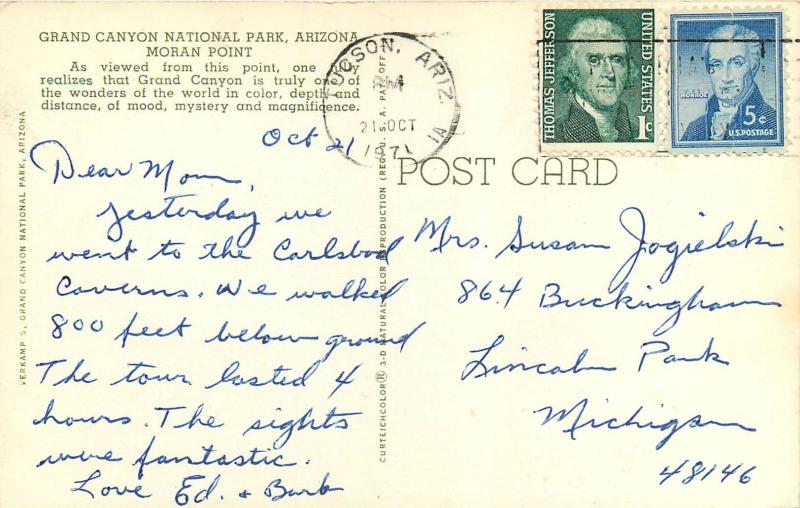 GRAND CANYON NATIONAL PARK, ARIZONA
MORAN POINT
As viewed from this point, one
realizes that Grand Canyon is truly one of
the wonders of the world in color, depth and
distance, of mood, mystery and magnificence.
TUCSON, ARIZ.
PM
21 OCT
1971
1A
THOMAS JEFFERSON
UNITED STATES
1c
MONROE
5c
U.S. POSTAGE
Oct 21
POST CARD
Dear Mom,
Yesterday we
went to the Carlsbad
Caverns. We walked
800 feet below ground
The tour lasted 4
hours. The sights
were fantastic.
Love Ed. + Barb
Mrs. Susan Jogielski
864 Buckingham
Lincoln Park
Michigan
48146
VERKAMP'S, GRAND CANYON NATIONAL PARK, ARIZONA
CURTEICHCOLOR® 3-D NATURAL COLOR REPRODUCTION (REG. U. S. A. PAT. OFF.)